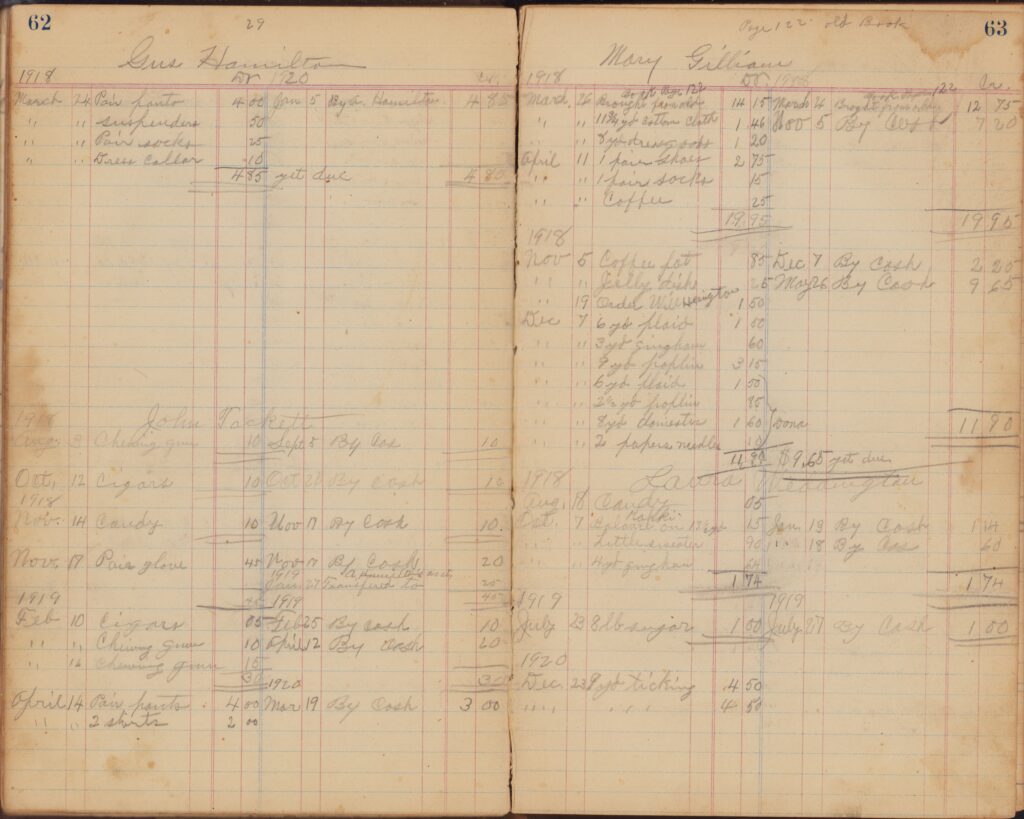 62
29
Gus Hamilton
1918 Dr 1920 Cr.
March 24 Pair pants 4 00 Jan 5 By A Hamilton 4 85
" " suspenders 50
" " Pair socks 25
" " Dress collar 10
4 85 yet due 4 85
John Tackett
1918
Aug. 3 Chewing gum 10 Sept 5 By Cas 10
Oct. 12 Cigars 10 Oct 21 By Cash 10
1918
Nov. 14 Candy 10 Nov 17 By Cash 10
Nov. 17 Pair glove 45 Nov 17 By Cash 20
1919
Jan 27 Transfered to 25
1919 45 1919 45
Feb 10 Cigars 05 Feb 25 By Cash 10
" " Chewing gum 10 April 12 By Cash 20
" " Chewing gum 15
30 1920 30
April 14 Pair pants 4 00 Mar 19 By Cash 3 00
" " 2 shirts 2 00
Page 122 old Book
63
Mary Gilliam
1918 Dr 1918 Cr.
Book Page 122 Book Page 122
March 26 Brought forward 14 15 March 26 Brought forward 12 75
" " 11 3/4 yd cotton cloth 1 46 Nov 5 By Cash 7 20
" " 8 yd dress goods 1 20
April 11 1 pair shoes 2 75
" " 1 pair socks 15
" " Coffee 25
19.95 19 95
1918
Nov 5 Coffee pot 85 Dec 7 By Cash 2 25
" " Jelly dish 25 May 26 By Cash 9 65
" 19 Order Will 1 50
Dec 7 6 yd plaid 1 00
" " 3 yd gingham 60
" " 9 yd poplin 3 15
" " 6 yd plaid 1 00
" " yd poplin 85
" " 8 yd domestic 1 60 Dona 11.90
" " 2 papers needles 10
11 90 $9,65 yet due
1918 Laura Weddington
Aug. 18 Candy 05
Oct. 7 Balance on 15 Jan. 13 By Cash 1 14
" " Little sweater 90 " 18 By Cas 60
" " 4 yd gingham 64
1 74 1 74
1919 1919
July 23 8 lb sugar 1 00 July 27 By Cash 1 00
1920
Dec. 23 9 yd ticking 4 50
" " " " 4 50